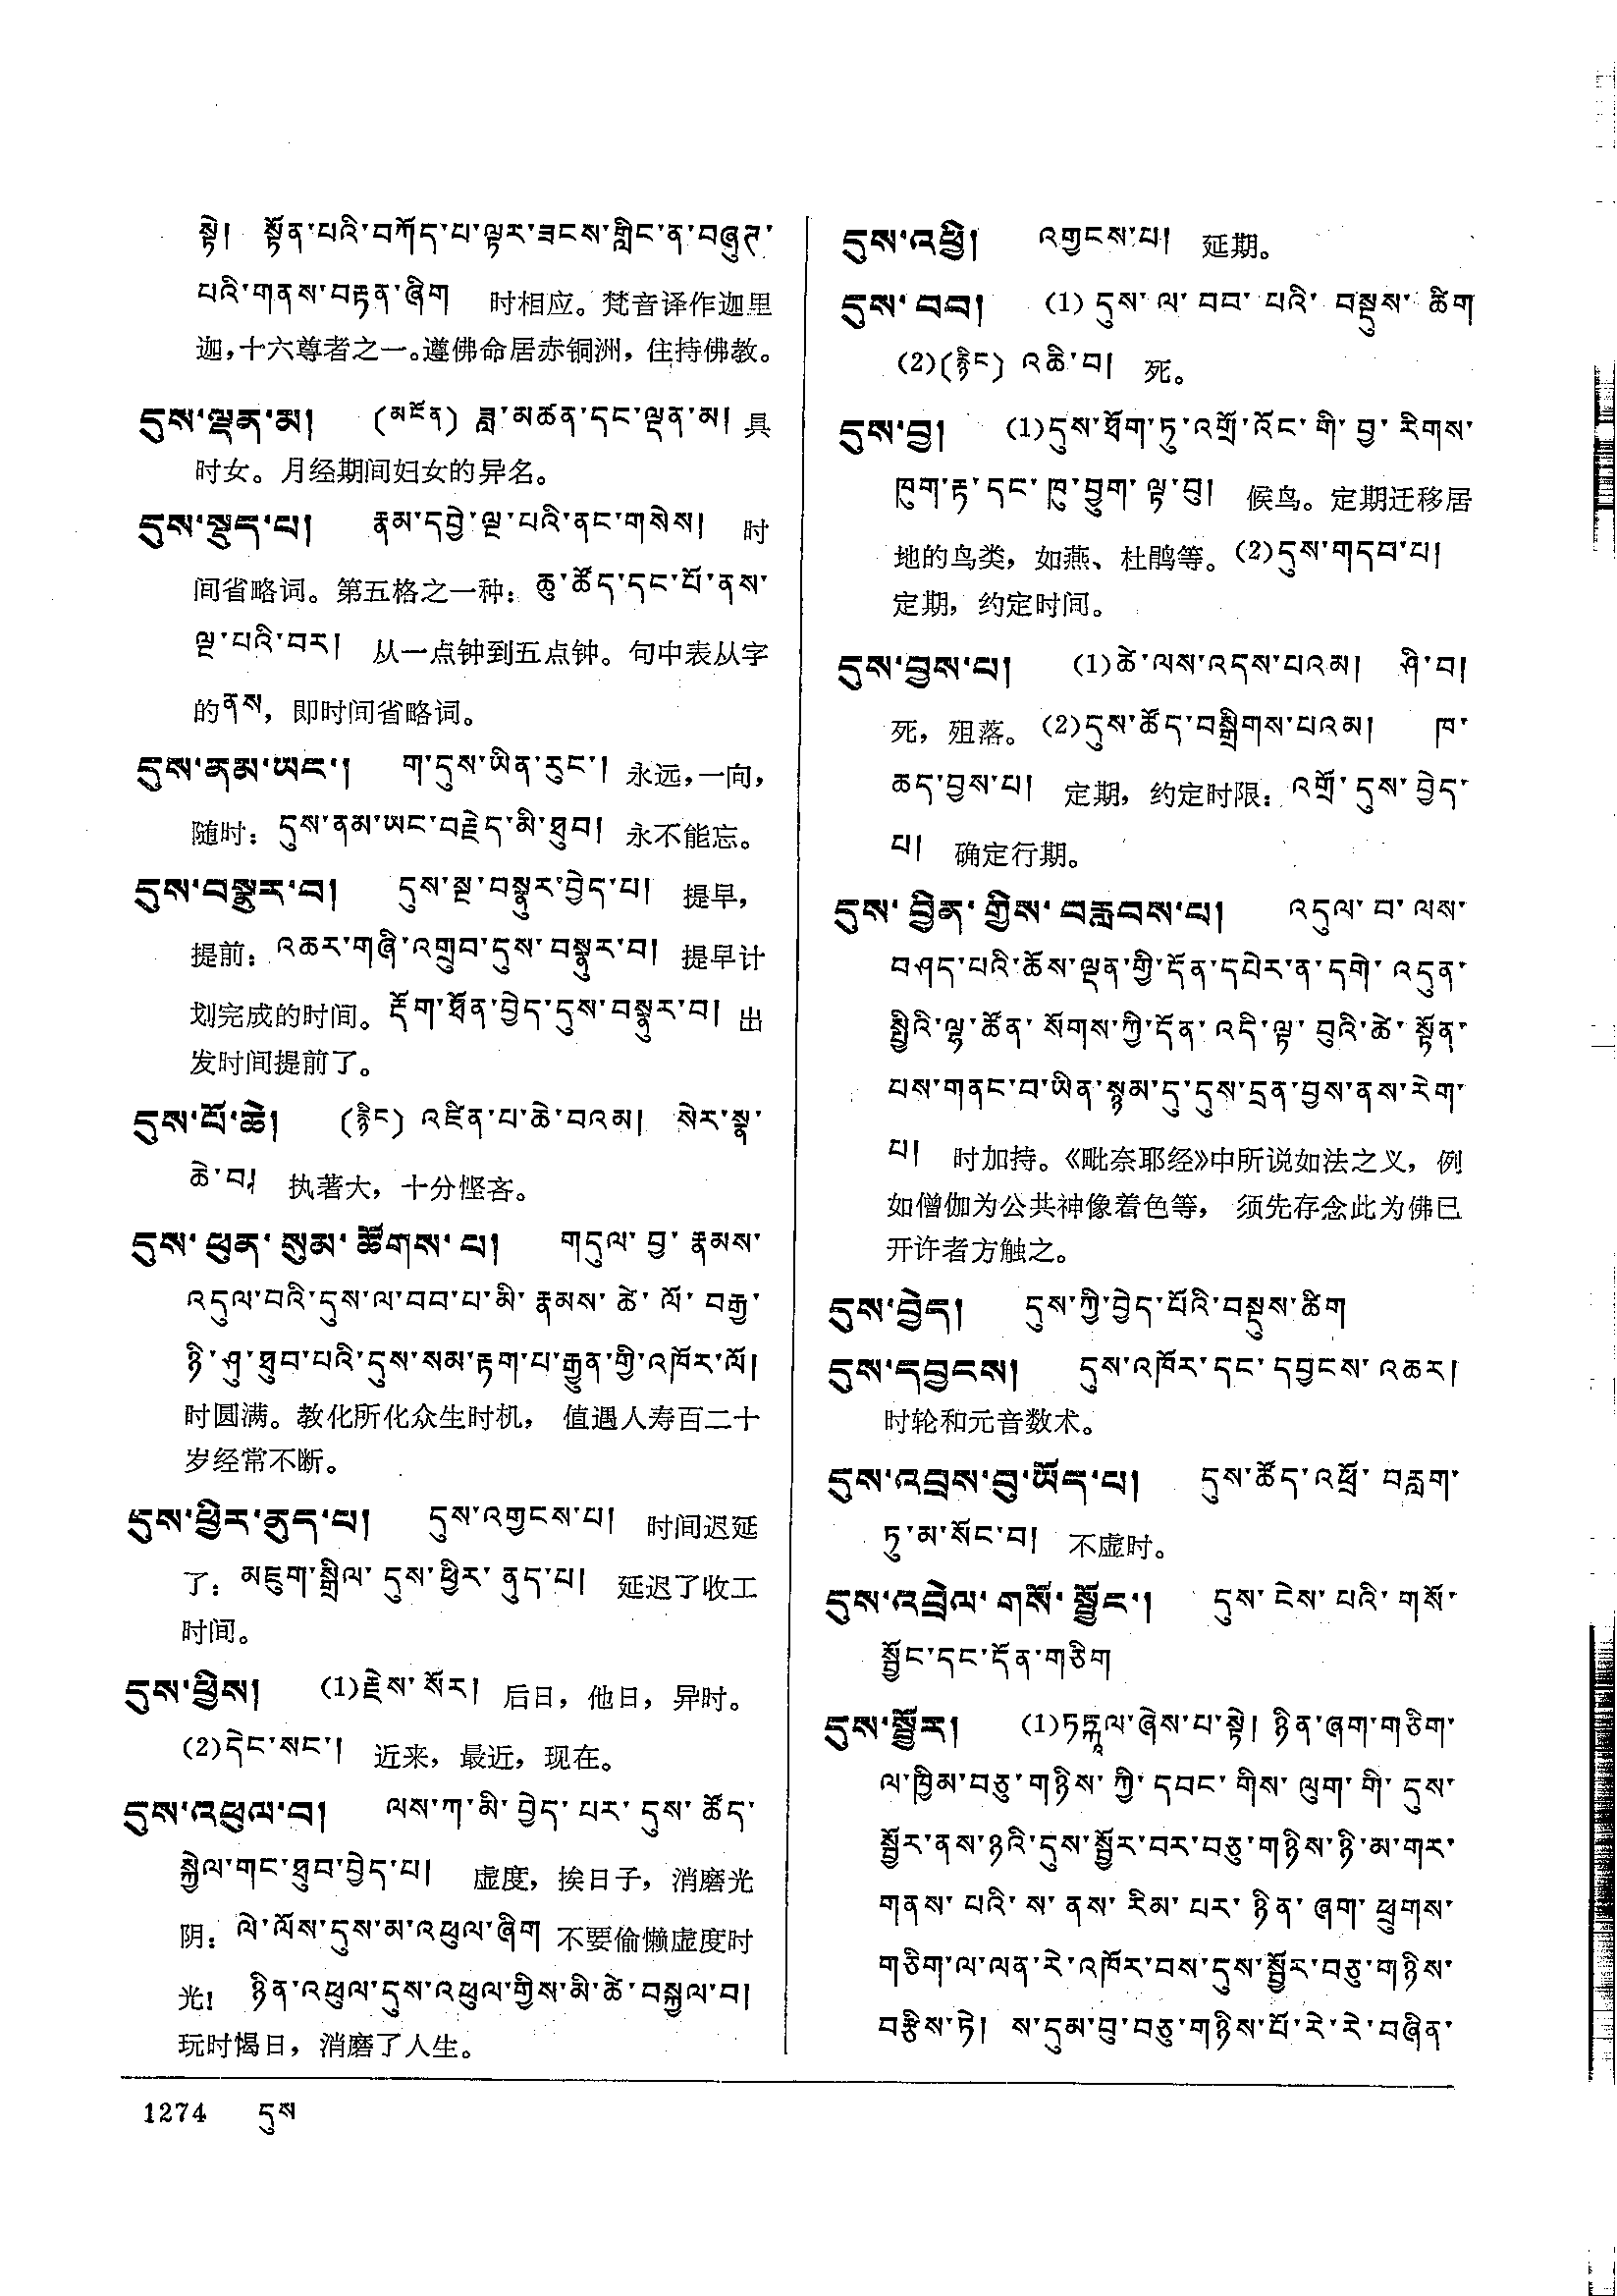 སྟེ། སྟོན་པའི་བཀོད་པ་ལྟར་ཟངས་གླིང་ན་བཞུཊ་
པའི་གནས་བརྟན་ཞིག 时相应。梵音译作迦里
迦,十六尊者之一。遵佛命居赤铜洲，住持佛教。
དུས་ལྡན་མ། (མངོན) ཟླ་མཚན་དང་ལྡན་མ། 具
时女。月经期间妇女的异名。
དུས་སྡུད་པ། རྣམ་དབྱེ་ལྔ་པའི་ནང་གསེས། 时
间省略词。第五格之一种：ཆུ་ཚོད་དང་པོ་ནས་
ལྔ་པའི་བར། 从一点钟到五点钟。句中表从字
的ནས，即时间省略词。
དུས་ནམ་ཡང་། ག་དུས་ཡིན་རུང་། 永远,一向，
随时：དུས་ནམ་ཡང་བརྗེད་མི་ཐུབ། 永不能忘。
དུས་བསྣུར་བ། དུས་སྔ་བསྣུར་བྱེད་པ། 提早，
提前：འཆར་གཞི་འགྲུབ་དུས་བསྣུར་བ། 提早计
划完成的时间。རྡོག་ཐོན་བྱེད་དུས་བསྣུར་བ། 出
发时间提前了。
དུས་པོ་ཆེ། (རྙིང) འཛིན་པ་ཆེ་བའམ། སེར་སྣ་
ཆེ་བ། 执著大，十分悭吝。
དུས་ཕུན་སུམ་ཚོགས་པ། གདུལ་བྱ་རྣམས་
འདུལ་བའི་དུས་ལ་བབ་པ་མི་རྣམས་ཚེ་ལོ་བརྒྱ་
ཉི་ཤུ་ཐུབ་པའི་དུས་སམ་རྟག་པ་རྒྱུན་གྱི་འཁོར་ལོ།
时圆满。教化所化众生时机，值遇人寿百二十
岁经常不断。
དུས་ཕྱིར་ནུད་པ། དུས་འགྱངས་པ། 时间迟延
了：མཇུག་སྒྲིལ་དུས་ཕྱིར་ནུད་པ། 延迟了收工
时间。
དུས་ཕྱིས། (1)རྗེས་སོར། 后日，他日，异时。
(2)དེང་སང་། 近来，最近，现在。
དུས་འཕུལ་བ། ལས་ཀ་མི་བྱེད་པར་དུས་ཚོད་
སྐྱེལ་གང་ཐུབ་བྱེད་པ། 虚度，挨日子，消磨光
阴：ལེ་ལོས་དུས་མ་འཕུལ་ཞིག 不要偷懒虚度时
光！ ཉིན་འཕུལ་དུས་འཕུལ་གྱིས་མི་ཚེ་བསྐྱལ་བ།
玩时愒日，消磨了人生。
དུས་འཕྱི། འགྱངས་པ། 延期。
དུས་བབ། (1) དུས་ལ་བབ་པའི་བསྡུས་ཚིག
(2)(རྙིང) འཆི་བ། 死。
དུས་བྱ། (1)དུས་ཐོག་ཏུ་འགྲོ་འོང་གི་བྱ་རིགས་
ཁུག་རྟ་དང་ཁུ་བྱུག་ལྟ་བུ། 候鸟。定期迁移居
地的鸟类，如燕、杜鹃等。(2)དུས་གདབ་པ།
定期，约定时间。
དུས་བྱས་པ། (1)ཚེ་ལས་འདས་པའམ། ཤི་བ།
死，殂落。(2)དུས་ཚོད་བསྒྲིགས་པའམ། ཁ་
ཆད་བྱས་པ། 定期，约定时限：འགྲོ་དུས་བྱེད་
པ། 确定行期。
དུས་བྱིན་གྱིས་བརླབས་པ། འདུལ་བ་ལས་
བཤད་པའི་ཆོས་ལྡན་གྱི་དོན་དཔེར་ན་དགེ་འདུན་
སྤྱིའི་ལྷ་ཚོན་སོགས་ཀྱི་དོན་འདི་ལྟ་བུའི་ཚེ་སྟོན་
པས་གནང་བ་ཡིན་སྙམ་དུ་དུས་དྲན་བྱས་ནས་རེག་
པ། 时加持。《毗奈耶经》中所说如法之义，例
如僧伽为公共神像着色等，须先存念此为佛已
开许者方触之。
དུས་བྱེད། དུས་ཀྱི་བྱེད་པོའི་བསྡུས་ཚིག
དུས་དབྱངས། དུས་འཁོར་དང་དབྱངས་འཆར།
时轮和元音数术。
དུས་འབྲས་བུ་ཡོད་པ། དུས་ཚོད་འཕྲོ་བརླག་
ཏུ་མ་སོང་བ། 不虚时。
དུས་འབྲེལ་གསོ་སྦྱོང་། དུས་ངེས་པའི་གསོ་
སྦྱོང་དང་དོན་གཅིག
དུས་སྦྱོར། (1)ཏཏྐཱལ་ཞེས་པ་སྟེ། ཉིན་ཞག་གཅིག་
ལ་ཁྱིམ་བཅུ་གཉིས་ཀྱི་དབང་གིས་ལུག་གི་དུས་
སྦྱོར་ནས་ཉའི་དུས་སྦྱོར་བར་བཅུ་གཉིས་ཉི་མ་གར་
གནས་པའི་ས་ནས་རིམ་པར་ཉིན་ཞག་ཕྲུགས་
གཅིག་ལ་ལན་རེ་འཁོར་བས་དུས་སྦྱོར་བཅུ་གཉིས་
བརྩིས་ཏེ། ས་དུམ་བུ་བཅུ་གཉིས་པོ་རེ་རེ་བཞིན་
1274 དུས